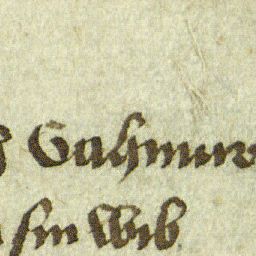 Gahmur
sin wib